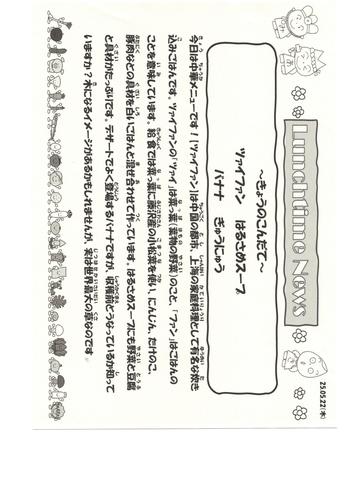 Lunchtime News
25.05.22(木)
～きょうのこんだて～
ツァイファン　はるさめスープ
バナナ　ぎゅうにゅう
今日は中華メニューです！【ツァイファン】は中国の都市、上海の家庭料理として有名な炊き
込みごはんです。ツァイファンの「ツァイ」は菜っ葉（葉物の野菜）のこと、「ファン」はごはんの
ことを意味しています。給食では菜っ葉に藤沢産の小松菜を使い、にんじん、たけのこ、
豚肉などの具材を白いごはんと混ぜ合わせて作っています。はるさめスープにも野菜と豆腐
と具材がたっぷりです。デザートでよく登場するバナナですが、収穫前どうなっているか知って
いますか？木になるイメージがあるかもしれませんが、実は世界最大の草なのです。